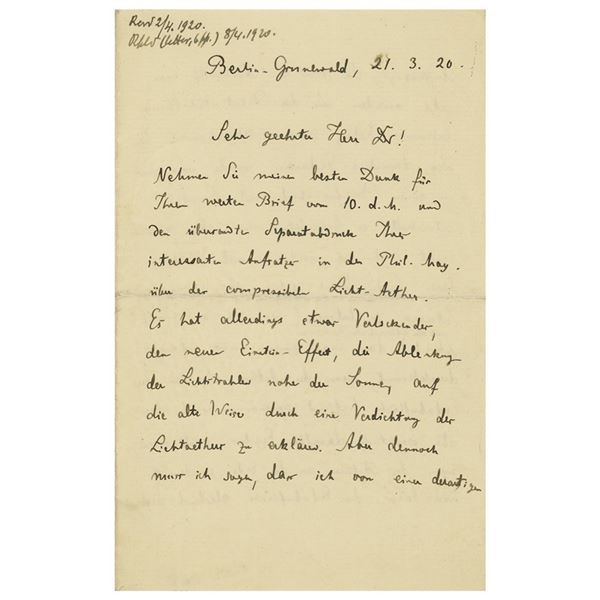 Recd 2/4. 1920.
Repld (letter, 6 pp.) 8/4. 1920.
Berlin-Grunewald, 21. 3. 20.
Sehr geehrter Herr Dr!
Nehmen Sie meinen besten Dank für
Ihren werten Brief vom 10. d. M. und
den übersandten Separatabdruck Ihres
interessanten Aufsatzes in der Phil. Mag.
über den compressibeln Licht-Aether.
Es hat allerdings etwas Verlockendes,
den neuen Einstein-Effect, die Ablenkung
der Lichtstrahlen nahe der Sonne, auf
die alte Weise durch eine Verdichtung des
Lichtaethers zu erklären. Aber dennoch
muss ich sagen, dass ich von einer derartigen